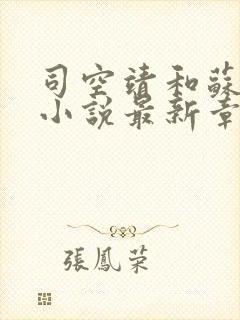 司空靖和蘇
小說最新章
張鳳荣